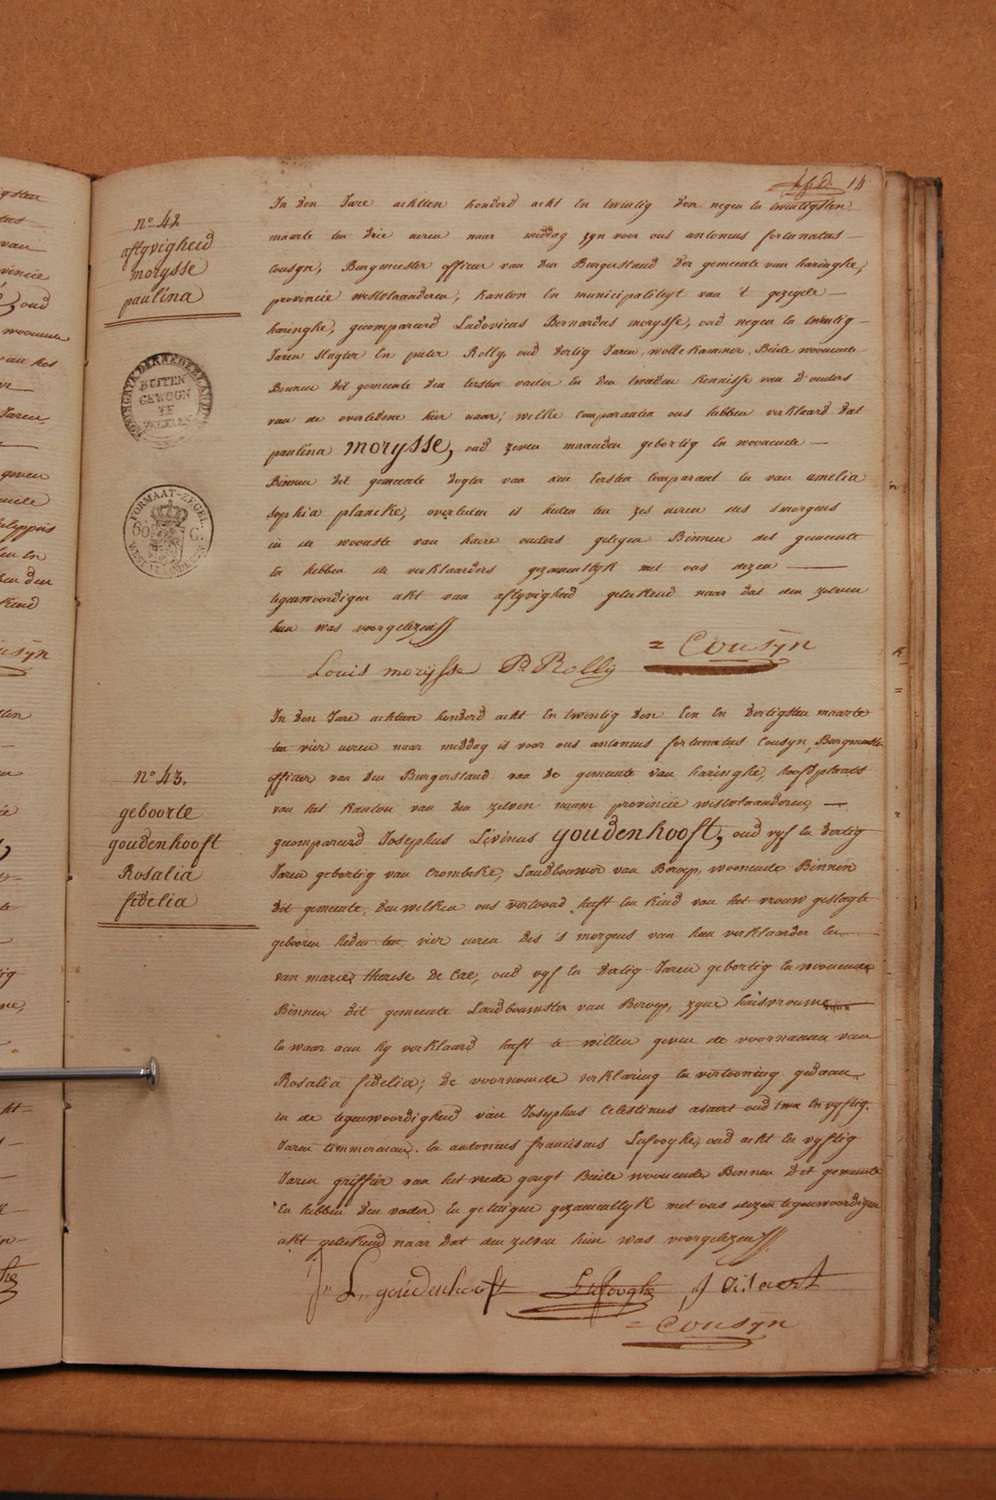 14
n° 42
aflyvigheid
morysse
paulina
KONINGRYK DER NEDERLANDEN
BUITEN
GEWOON
TE
ZEGELEN
FORMAAT-ZEGEL
In den Jare achtien honderd acht En twintig den negen En twintigsten
maarte ten drie uren naar middag zyn voor ons antonius fortunatus
Cousyn, Burgmeester officier van den Burgerstand der gemeente van haringhe,
provincie westvlaanderen, kanton En municipaliteyt van 't gezegde
haringhe, gecompareerd Ludovicus Bernardus morysse, oud negen En twintig
Jaren slagter En pieter Rolly, oud dertig Jaren, wollekammer, Beide woonende
Binnen dit gemeente den Eersten vader En den tweeden kennisse van d'ouders
van de overledene hier naar, welke Comparanten ons hebben verklaard dat
paulina morysse, oud zeven maanden gebortig En woonende
Binnen dit gemeente dogter van den Eersten Comparant En van amelia
sophia plancke, overleden is heden ten zes uren des smorgens
in de woonste van haere ouders gelegen Binnen dit gemeente
En hebben de verklaarders gezamentlyk met ons dezen
tegenwoordigen akt van aflyvigheid geteekend naar dat den zelven
hun was voorgelezen
Louis morysse P Rolly = Cousyn
n° 43.
geboorte
goudenhooft
Rosalia
fidelia
In den Jare achtien honderd acht En twintig den Een En dertigsten maarte
ten vier uren naar middag is voor ons antonius fortunatus Cousyn, Burgmeester
officier van den Burgerstand van de gemeente van haringhe, hoofdplaats
van het kanton van den zelven naam provincie westvlaanderen,
gecompareerd Josephus Livinus goudenhooft, oud vyf En dertig
Jaren gebortig van Crombeke, Landbouwer van Beroep, woonende Binnen
dit gemeente, den welken ons vertoond heeft Een kind van het vrouw geslagte
geboren heden ten vier uren des 's morgens van hem verklaarder En
van marie therese De Cae, oud vyf En dertig Jaren gebortig En woonende
Binnen dit gemeente Landbouwster van Beroep, zyne huisvrouwe
En waar aan hy verklaard heeft te willen geven de voornamen van
Rosalia fidelia; de voornoemde verklaring En vertooning gedaan
in de tegenwoordigheid van Josephus Celestinus asaert oud twee En vyftig
Jaren timmerman. En antonius franciscus Lefooghe, oud acht En vyftig
Jaren griffier van het vrede geregt Beide woonende Binnen dit gemeente
En hebben den vader En getuigen gezamentlyk met ons dezen tegenwoordigen
akt geteekend naar dat den zelven hun was voorgelezen
J. L. goudenhooft Lefooghe
= Cousyn